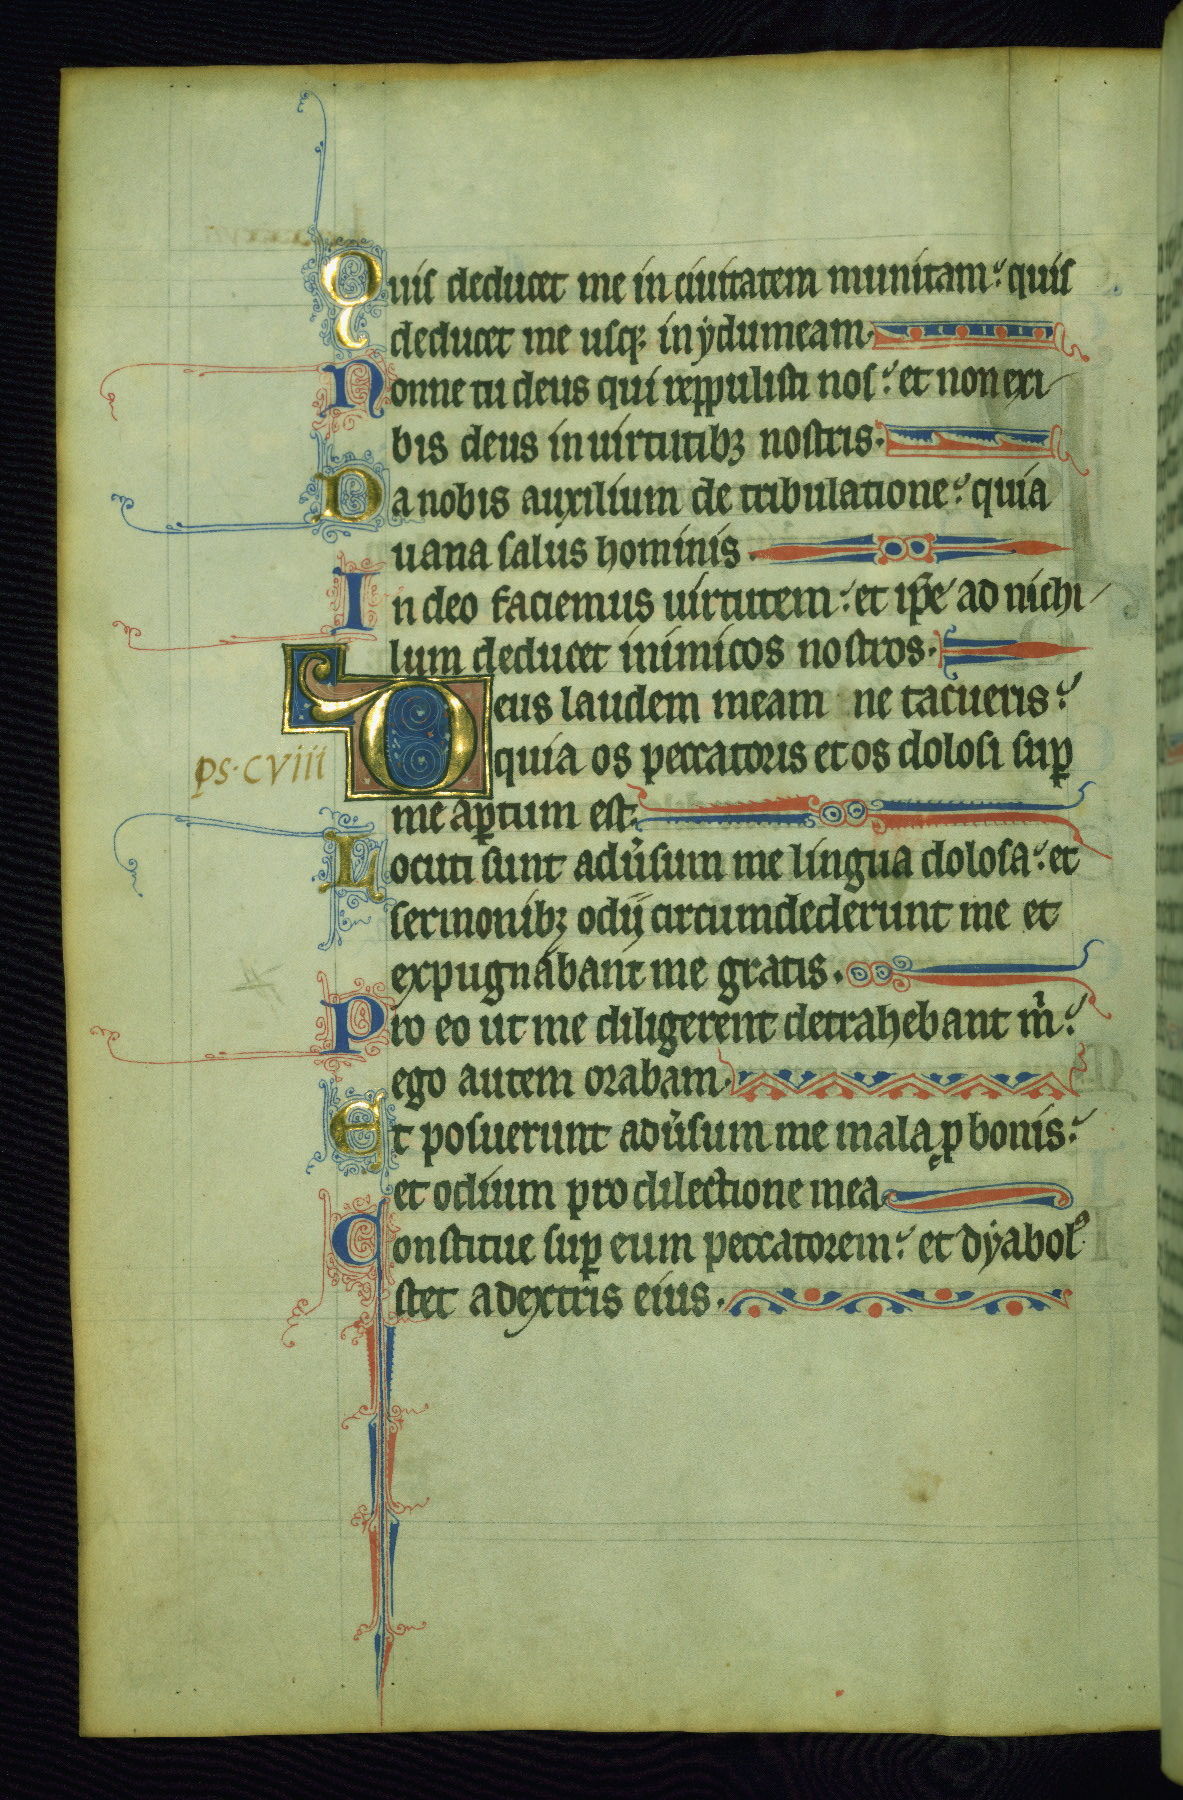 Quis deducet me in ciuitatem munitam: quis
deducet me usq; in ydumeam.
Nonne tu deus qui reppulisti nos: et non exi
bis deus in uirtutib; nostris.
Da nobis auxilium de tribulatione: quia
uana salus hominis.
In deo faciemus uirtutem: et ip̄e ad nichi
lum deducet inimicos nostros.
Deus laudem meam ne tacueris:
ps. CViii
quia os peccatoris et os dolosi suꝑ
me aꝑtum est.
Locuti sunt adu͛sum me lingua dolosa: et
sermonib; odij circumdederunt me et
expugnabant me gratis.
Pro eo ut me diligerent detrahebant m̍:
ego autem orabam.
Et posuerunt adu͛sum me mala ꝓ bonis:
et odium pro dilectione mea.
Constitue suꝑ eum peccatorem: et dyabolꝰ
stet a dextris eius.